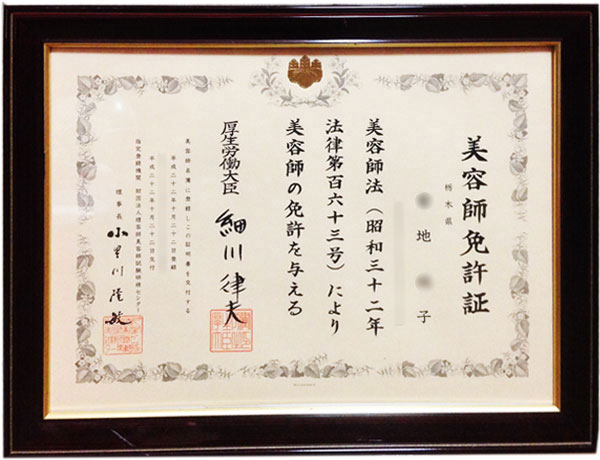 美容師免許証
栃木県
地 子
美容師法（昭和三十二年
法律第百六十三号）により
美容師の免許を与える
厚生労働大臣 細川律夫
美容師名簿に登録しこの証明書を交付する
平成二十二年十月二十二日登録
平成二十二年十月二十二日交付
指定登録機関 財団法人理容師美容師試験研修センター
理事長 小里川隆敏